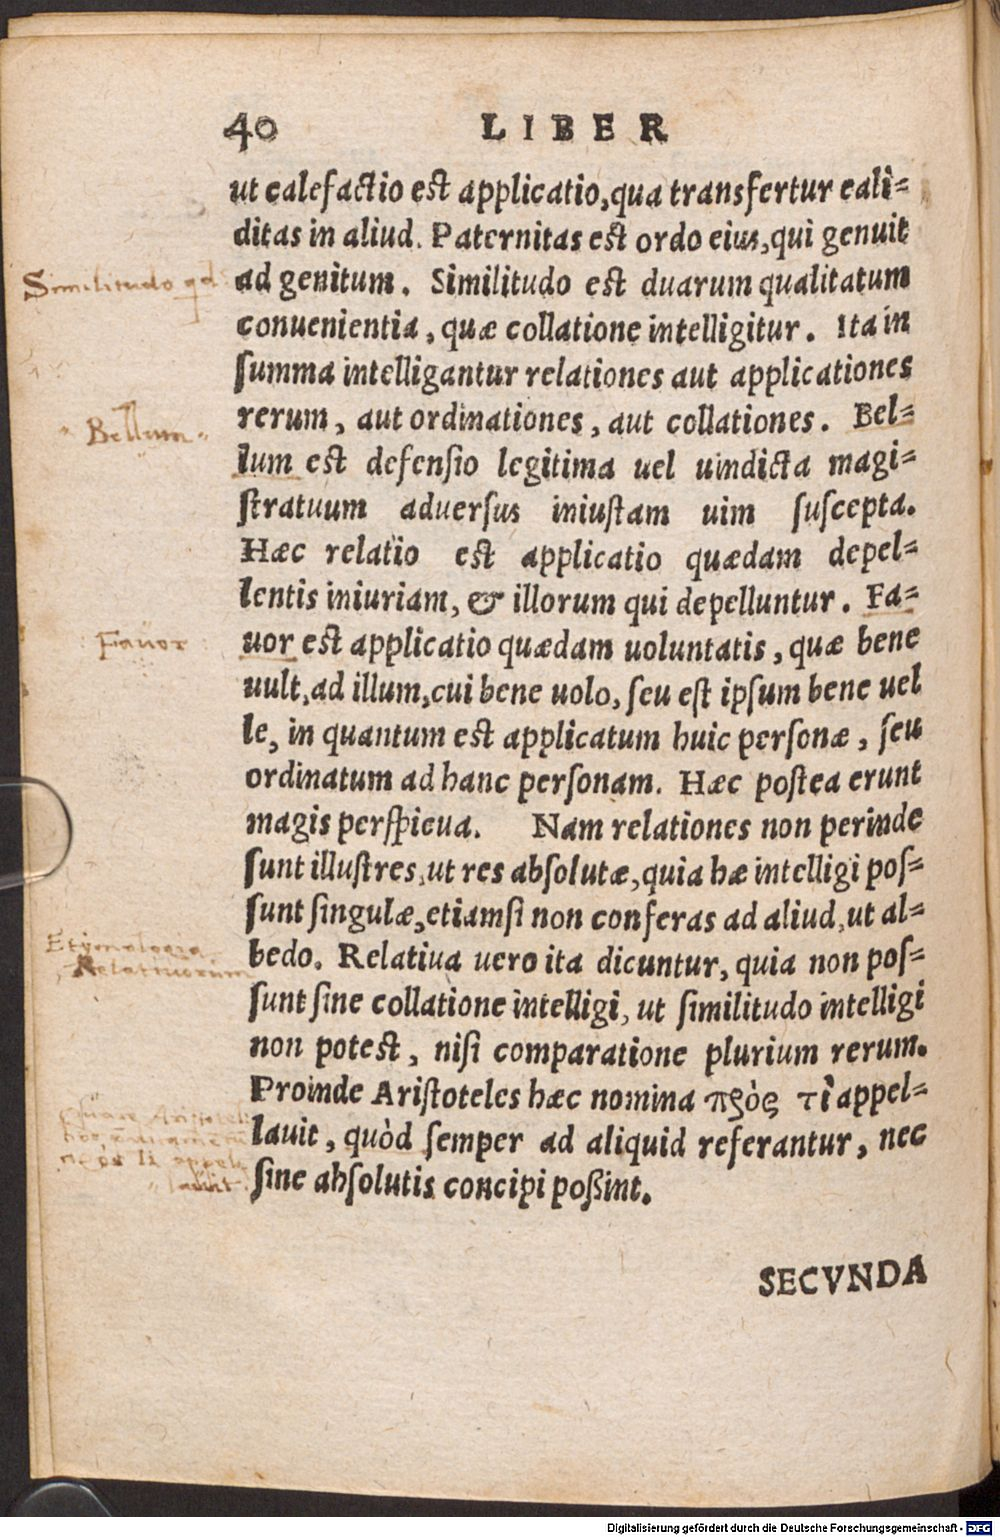 40 LIBER
ut calefactio est applicatio, qua transfertur cali-
ditas in aliud. Paternitas est ordo eius, qui genuit
Similitudo qd
ad genitum. Similitudo est duarum qualitatum
conuenientia, quæ collatione intelligitur. Ita in
summa intelligantur relationes aut applicationes
rerum, aut ordinationes, aut collationes. Bel-
Bellum
lum est defensio legitima uel uindicta magi-
stratuum aduersus iniustam uim suscepta.
Hæc relatio est applicatio quædam depel-
lentis iniuriam, & illorum qui depelluntur. Fa-
Fauor
uor est applicatio quædam uoluntatis, quæ bene
uult, ad illum, cui bene uolo, seu est ipsum bene uel
le, in quantum est applicatum huic personæ, seu
ordinatum ad hanc personam. Hæc postea erunt
magis perspicua. Nam relationes non perinde
sunt illustres, ut res absolutæ, quia hæ intelligi pos-
sunt singulæ, etiamsi non conferas ad aliud, ut al-
Etymologia
Relatiuorum
bedo. Relatiua uero ita dicuntur, quia non pos-
sunt sine collatione intelligi, ut similitudo intelligi
non potest, nisi comparatione plurium rerum.
Proinde Aristoteles hæc nomina πρὸς τὶ appel-
Quare Aristotel:
lauit, quòd semper ad aliquid referantur, nec
sine absolutis concipi possint.
lauit.
SECVNDA
Digitalisierung gefördert durch die Deutsche Forschungsgemeinschaft - DFG